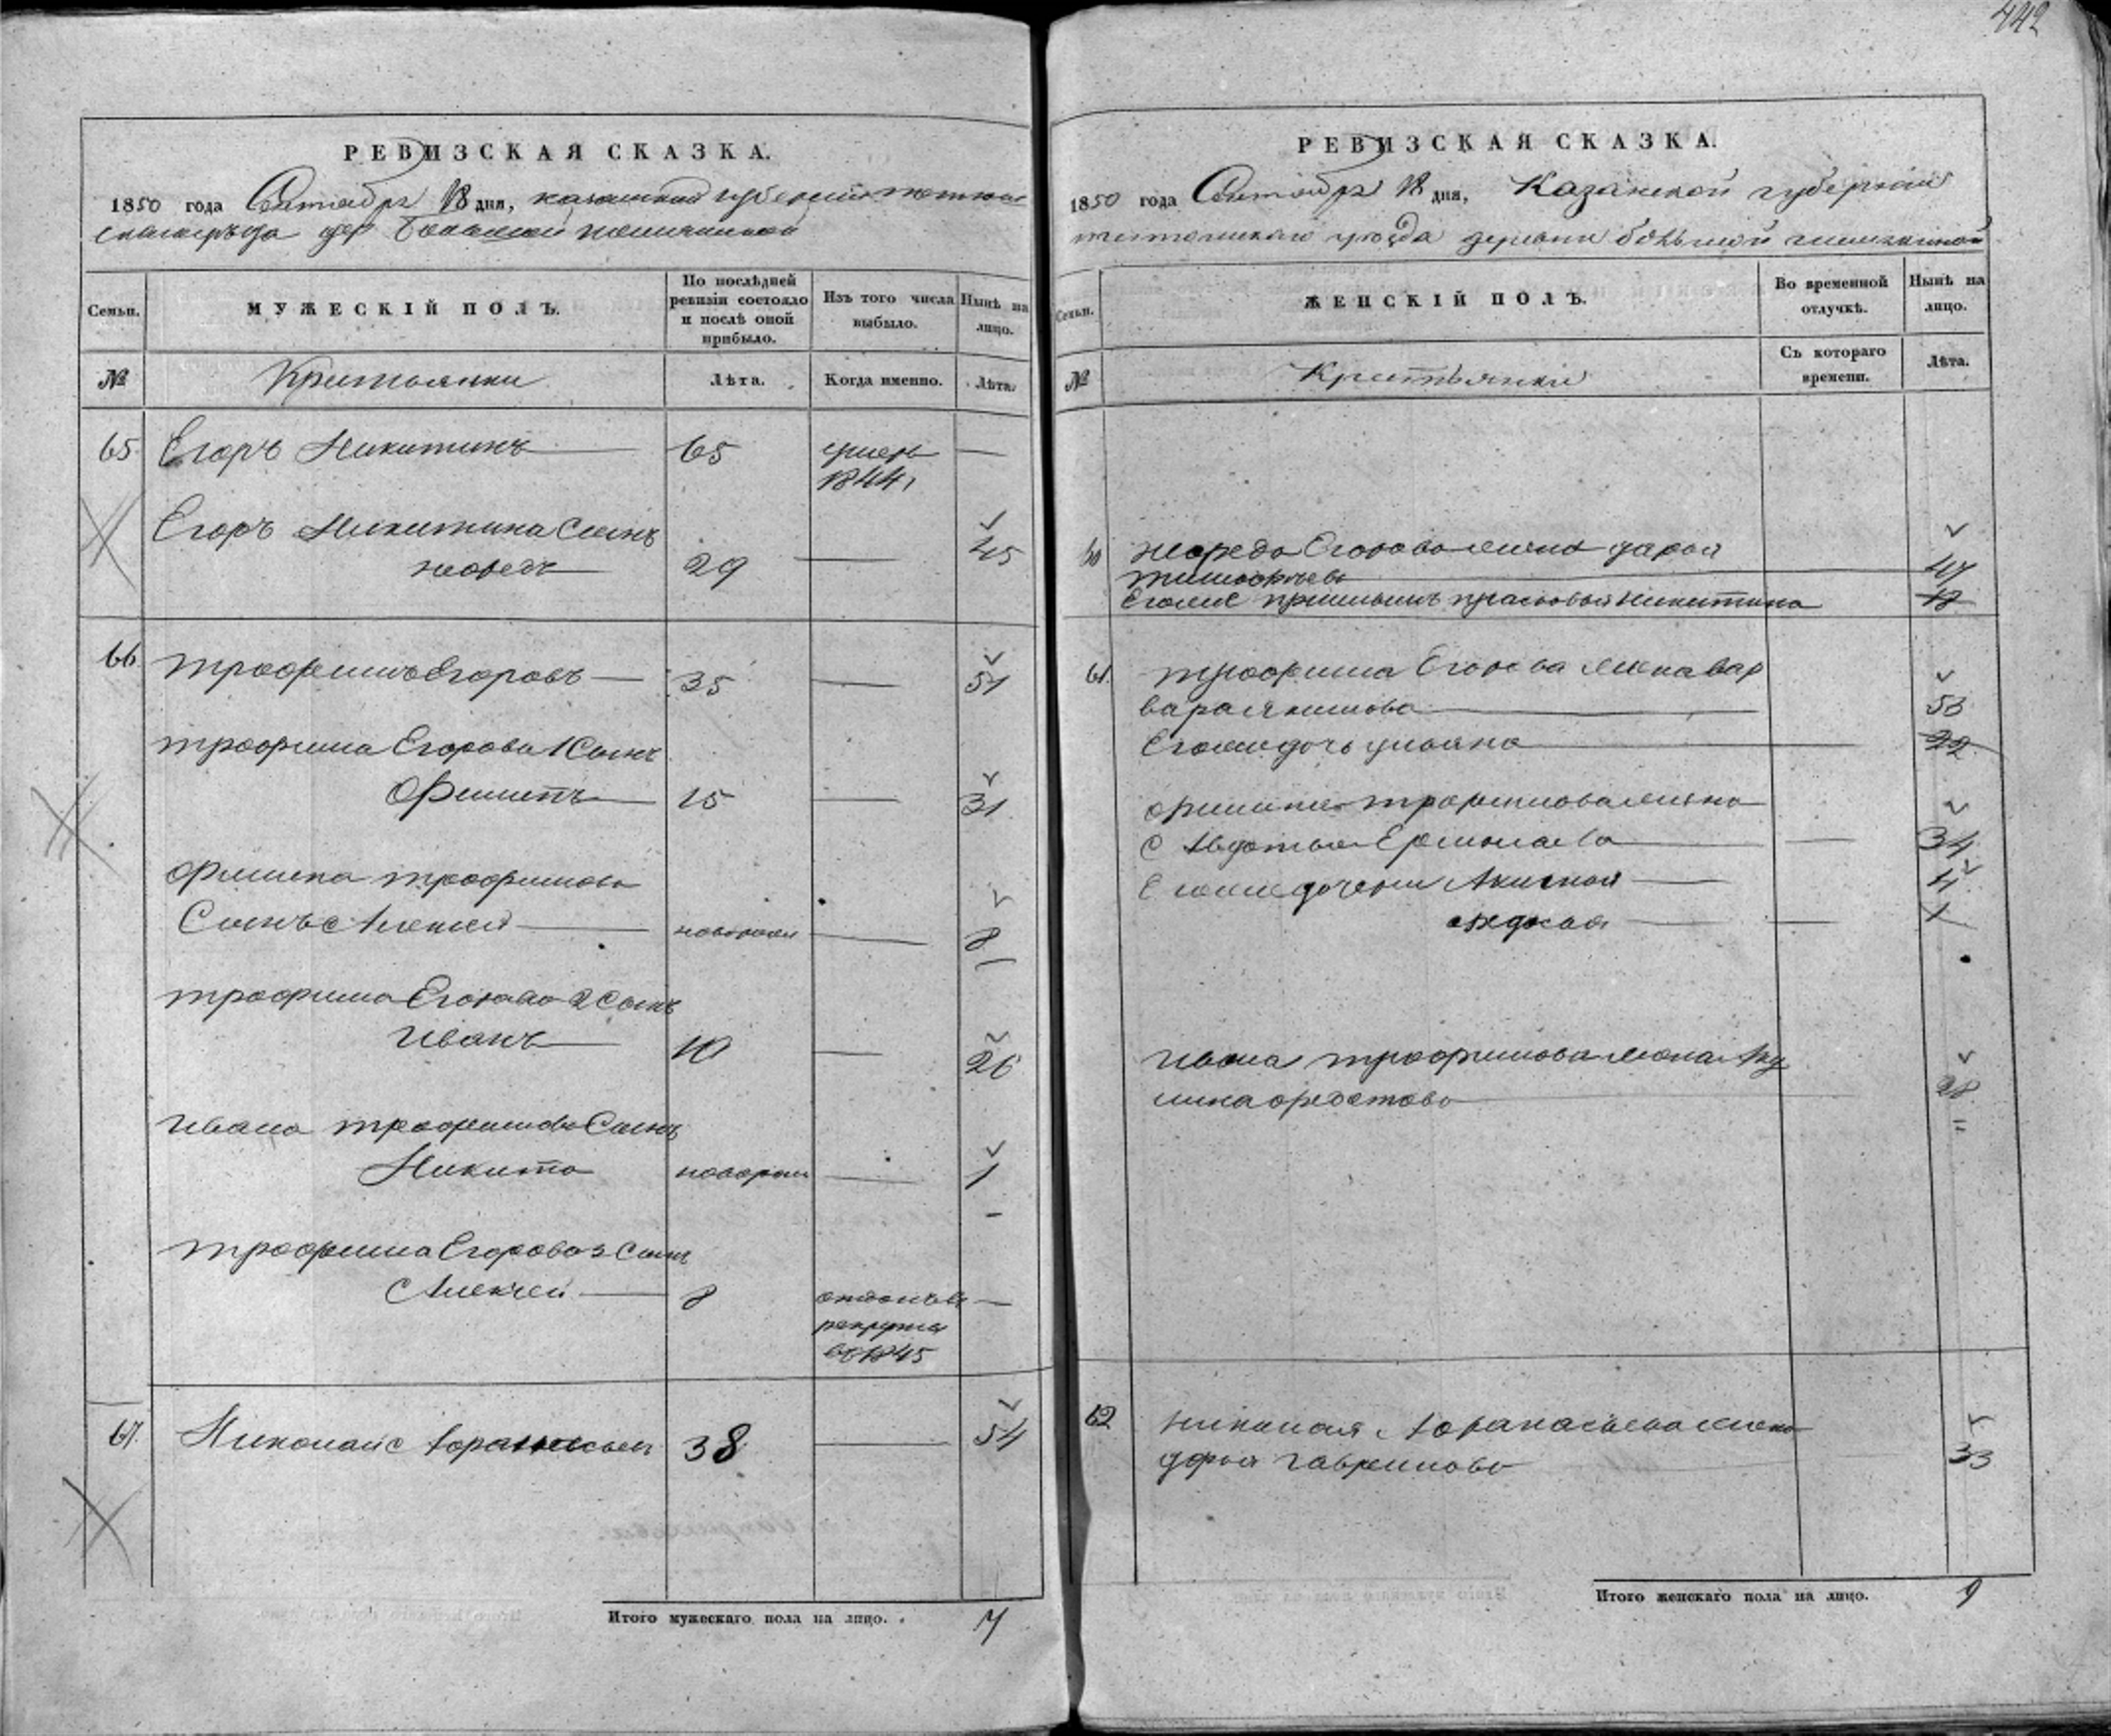 442
РЕВИЗСКАЯ СКАЗКА.
1850 года Сентября 18 дня, казанской губернии
уезда дер Большой
Семьи.
МУЖЕСКІЙ ПОЛЪ.
По послѣдней ревизіи состояло и послѣ оной прибыло.
Изъ того числа выбыло.
Нынѣ на лицо.
№
Крестьянки
Лѣта.
Когда именно.
Лѣта.
65 Егоръ Никитинъ 65 умеръ
1844
Егоръ Никитина Сынъ 45
29
66 трофимъ Егоровъ 35 51
трофима Егорова 1 Сынъ
Филипъ 15 31
Филипа трофимова
Сынъ Алексей новорож 8
трофима Егорова 2 Сынъ
Иванъ 10 26
Ивана трофимова Сынъ
Никита новорож 1
трофима Егорова 3 Сынъ
Алексей 8 отданъ в
рекруты
въ 1845
67 Николай Афанасьев 38 54
Итого мужескаго пола на лицо. 7
РЕВИЗСКАЯ СКАЗКА.
1850 года Сентября 18 дня, Казанской губернии
уезда деревни большой
Семьи.
ЖЕНСКІЙ ПОЛЪ.
Во временной отлучкѣ.
Нынѣ на лицо.
№
Крестьянки
Съ котораго времени.
Лѣта.
Егорова жена дарья
тимофеева 47
Егоже прасковья Никитина 18
61 трофима Егорова жена вар
вара Якимова 53
Егоже дочь ульяна 22
филипа трофимова жена
Авдотья Ермолаева 34
Егоже дочери Акилина 4
1
Ивана трофимова жена Аку
лина федотова 28
62 николая Афанасьева жена
дарья гаврилова 33
Итого женскаго пола на лицо. 9